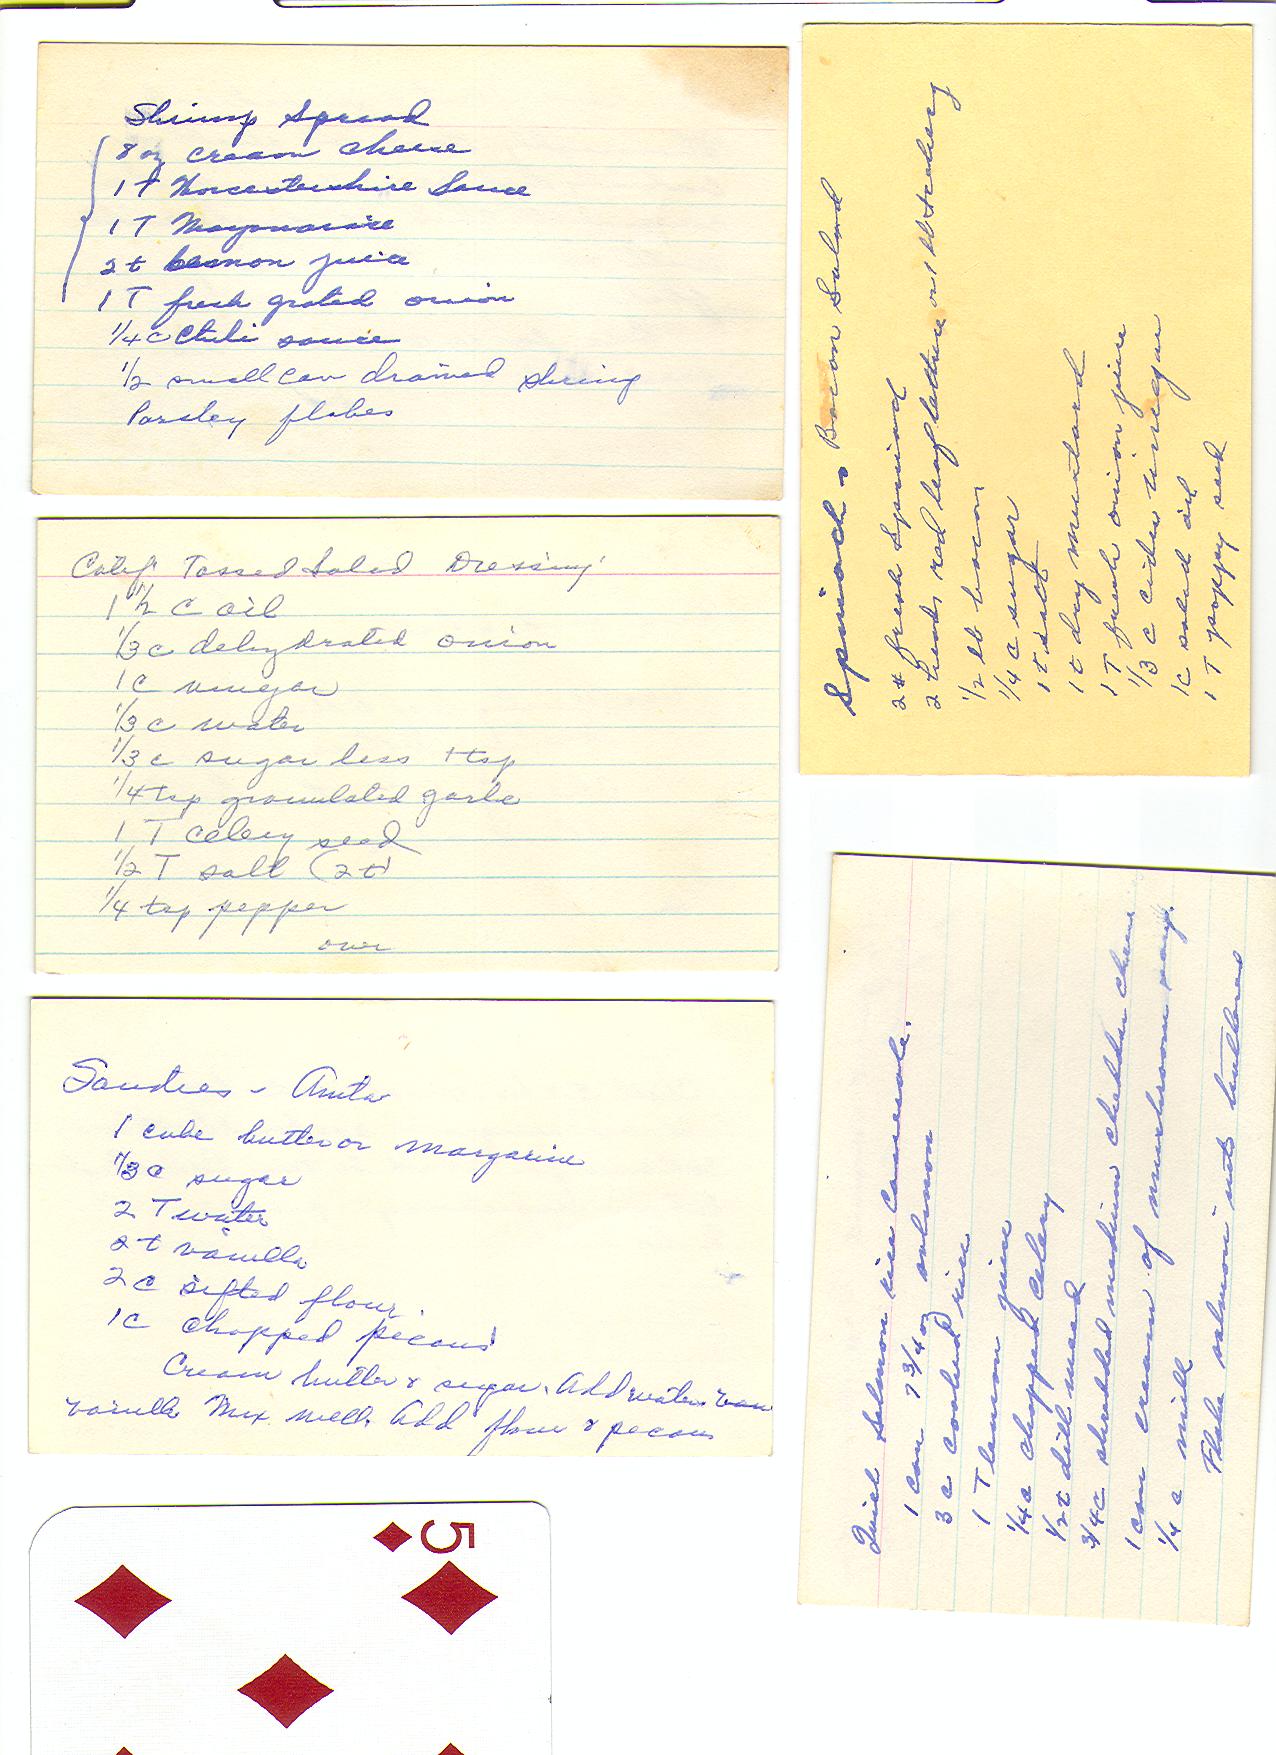 Shrimp Spread
8 oz cream cheese
1 T Worcestershire Sauce
1 T Mayonnaise
2 t lemon juice
1 T fresh grated onion
1/4 c Chili sauce
1/2 small can drained shrimp
Parsley flakes
Calif Tossed Salad Dressing
1 1/2 c oil
1/3 c dehydrated onion
1 c vinegar
1/3 c water
1/3 c sugar less 1 tsp
1/4 tsp granulated garlic
1 T celery seed
1/2 T salt (2 t)
1/4 tsp pepper
over
Sandies - Anita
1 cube butter or margarine
1/3 c sugar
2 T water
2 t vanilla
2 c sifted flour
1 c chopped pecans
Cream butter & sugar. Add water
vanilla Mix well. Add flour & pecans
5
Spinach - Bacon Salad
2 # fresh Spinach
2 heads red leaf lettuce or 1 lb iceberg
1/2 lb bacon
1/4 c sugar
1 t salt
1 t dry mustard
1 T fresh onion juice
1/3 c cider vinegar
1 c salad oil
1 T poppy seed
Quick Salmon rice Casserole.
1 can 7 3/4 oz salmon
3 c cooked rice
1 T lemon juice
1/4 c chopped celery
1/2 t dill weed
3/4 c shredded medium cheddar cheese
1 can cream of mushroom soup.
1/4 c milk
Flake salmon into buttered